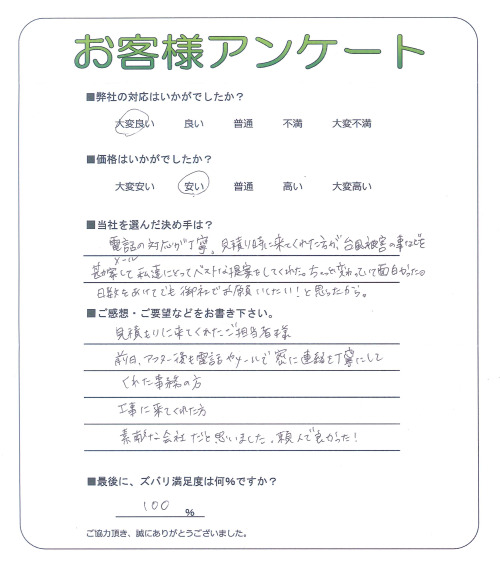 お客様アンケート
■弊社の対応はいかがでしたか？
大変良い 良い 普通 不満 大変不満
■価格はいかがでしたか？
大変安い 安い 普通 高い 大変高い
■当社を選んだ決め手は？
電話の対応が丁寧。見積り時に来てくれた方が、台風被害の事なども
メール
勘案して私達にとってベストな提案をしてくれた。ちょっと変わっていて面白かった。
日数をあけてでも御社でお願いしたい！と思ったから。
■ご感想・ご要望などをお書き下さい。
見積もりに来てくれたご担当者様
前日、アフター後も電話やメールで密に連絡を丁寧にして
くれた事務の方
工事に来てくれた方
素敵な会社だと思いました。頼んで良かった！
■最後に、ズバリ満足度は何%ですか？
100 %
ご協力頂き、誠にありがとうございました。